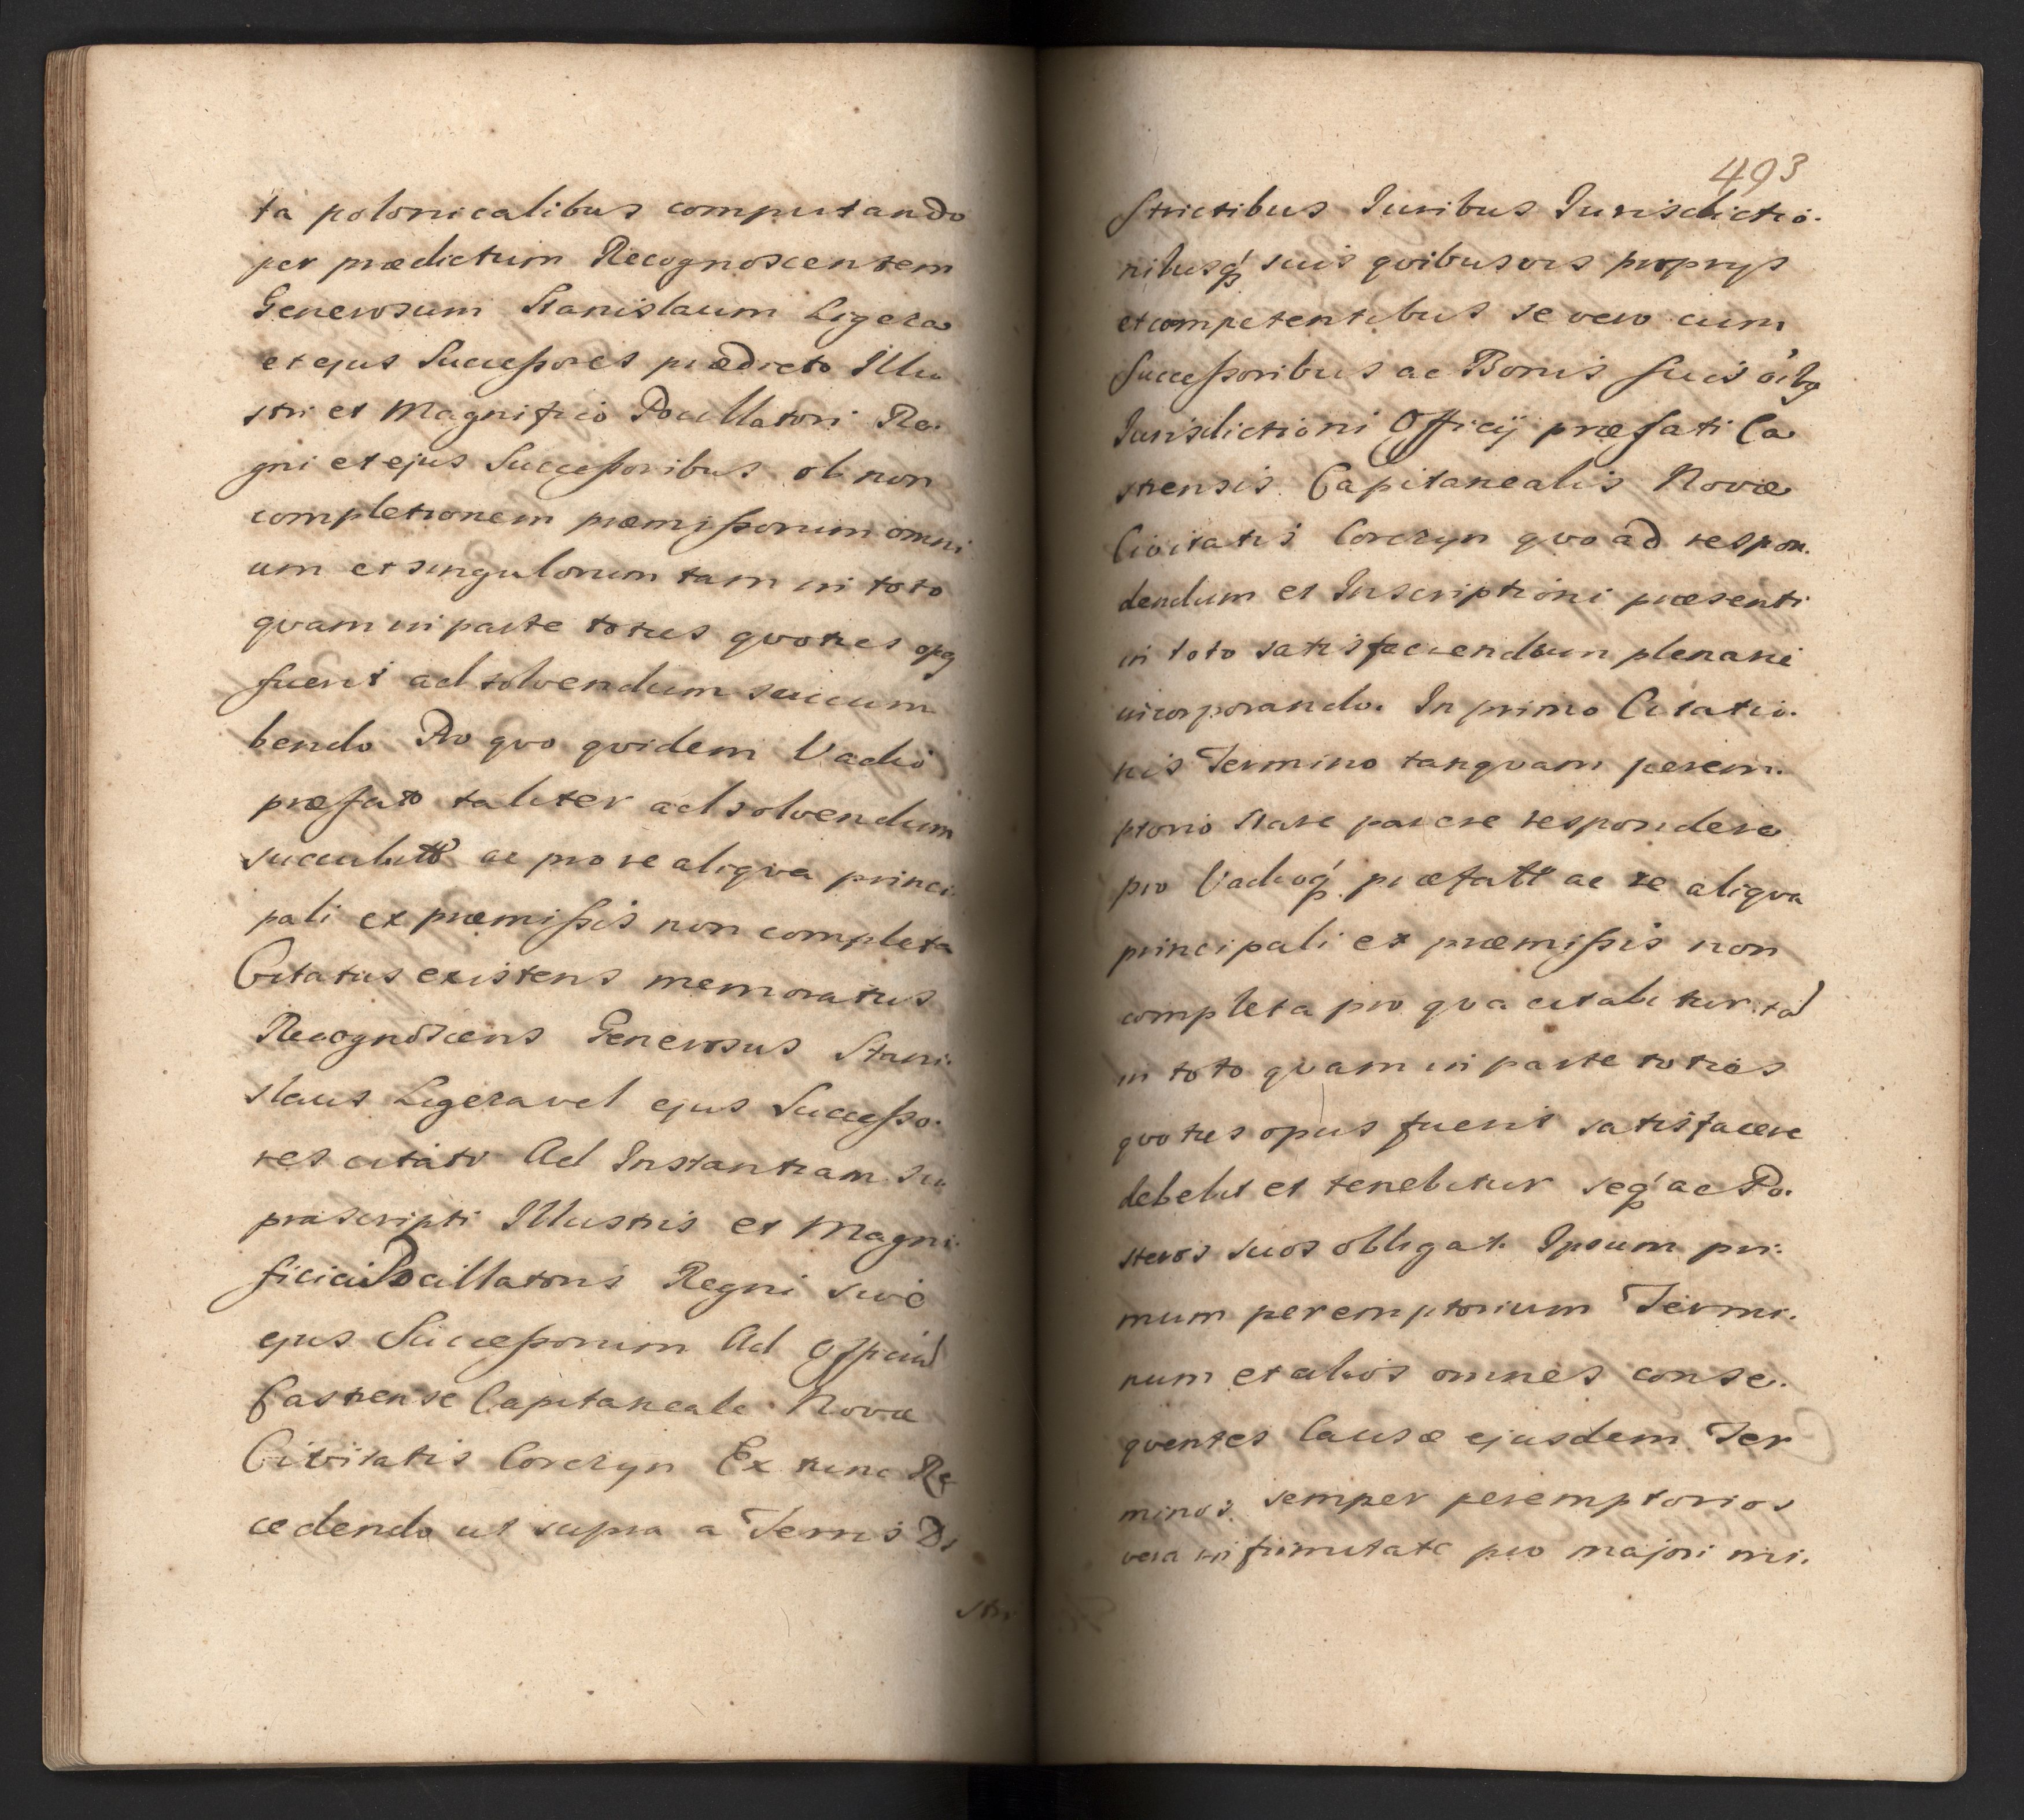 ta polonicalibus computando
per prædictum Recognoscentem
Generosum Stanislaum Ligęza
et ejus Successores prædicto Illu
stri et Magnifico Pocillatori Re.
gni et ejus Successoribus ob non
completionem præmissorum omni
um et singulorum tam in toto
qvam in parte toties qvoties opq
fuerit ad solvendum succum
bendo Pro qvo qvidem Vadio
præfato taliter ad solvendum
succubitto ac pro re aliqva princi.
pali ex præmissis non completa
Citatus existens memoratus
Recognoscens Generosus Stani.
slaus Ligęza vel ejus Successo.
res citati Ad Instantiam su
prascripti Illustris et Magni.
fici Pocillatoris Regni sive
ejus Successorum Ad Officiu
Castrense Capitaneale Novæ
Civitatis Corczyn Ex tunc Re
cedendo ut supra a Terris Di
stri
493
strictibus Iuribus Iurisdictio.
nibusq suis qvibusvis proprys
et competentibus se vero cum
Successoribus ac Bonis suis oibq
Iurisdictioni Officij præfati Ca
strensis Capitanealis Novæ
Civitatis Corczyn qvo ad respon.
dendum et Inscriptioni præsenti
in toto satisfaciendum plenarie
incorporando. In primo Citatio.
nis Termino tanqvam perem.
ptorio stare parere respondere
pro Vadioq præfatto ac re aliqva
principali ex præmissis non
completa pro qva citabitur ta
in toto qvam in parte toties
qvoties opus fuerit satisfacere
debebit et tenebitur seq ac Po.
steros suos obligat. Ipsum pri.
mum peremptorium Termi.
num et alios omnes conse.
qventes Causæ ejusdem Ter
minos semper peremptorios
vera infirmitate pro majori mi.